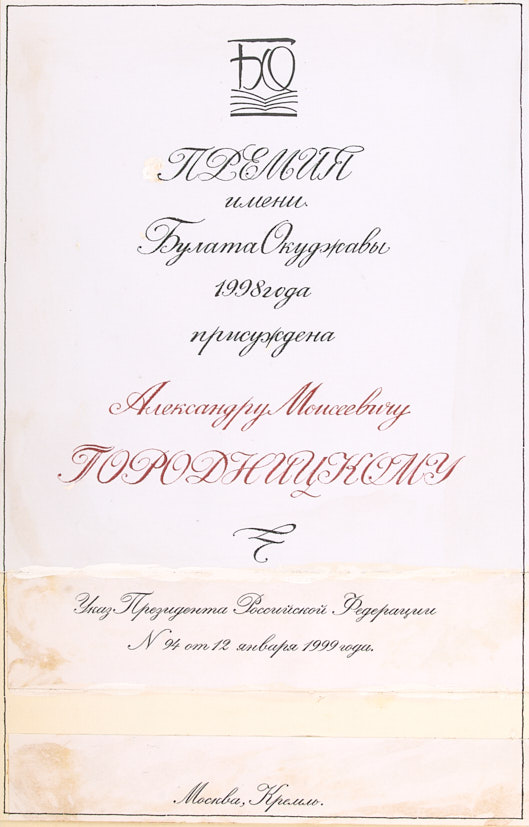 БО
ПРЕМИЯ
имени
Булата Окуджавы
1998 года
присуждена
Александру Моисеевичу
ГОРОДНИЦКОМУ
Указ Президента Российской Федерации
N 94 от 12 января 1999 года.
Москва, Кремль.